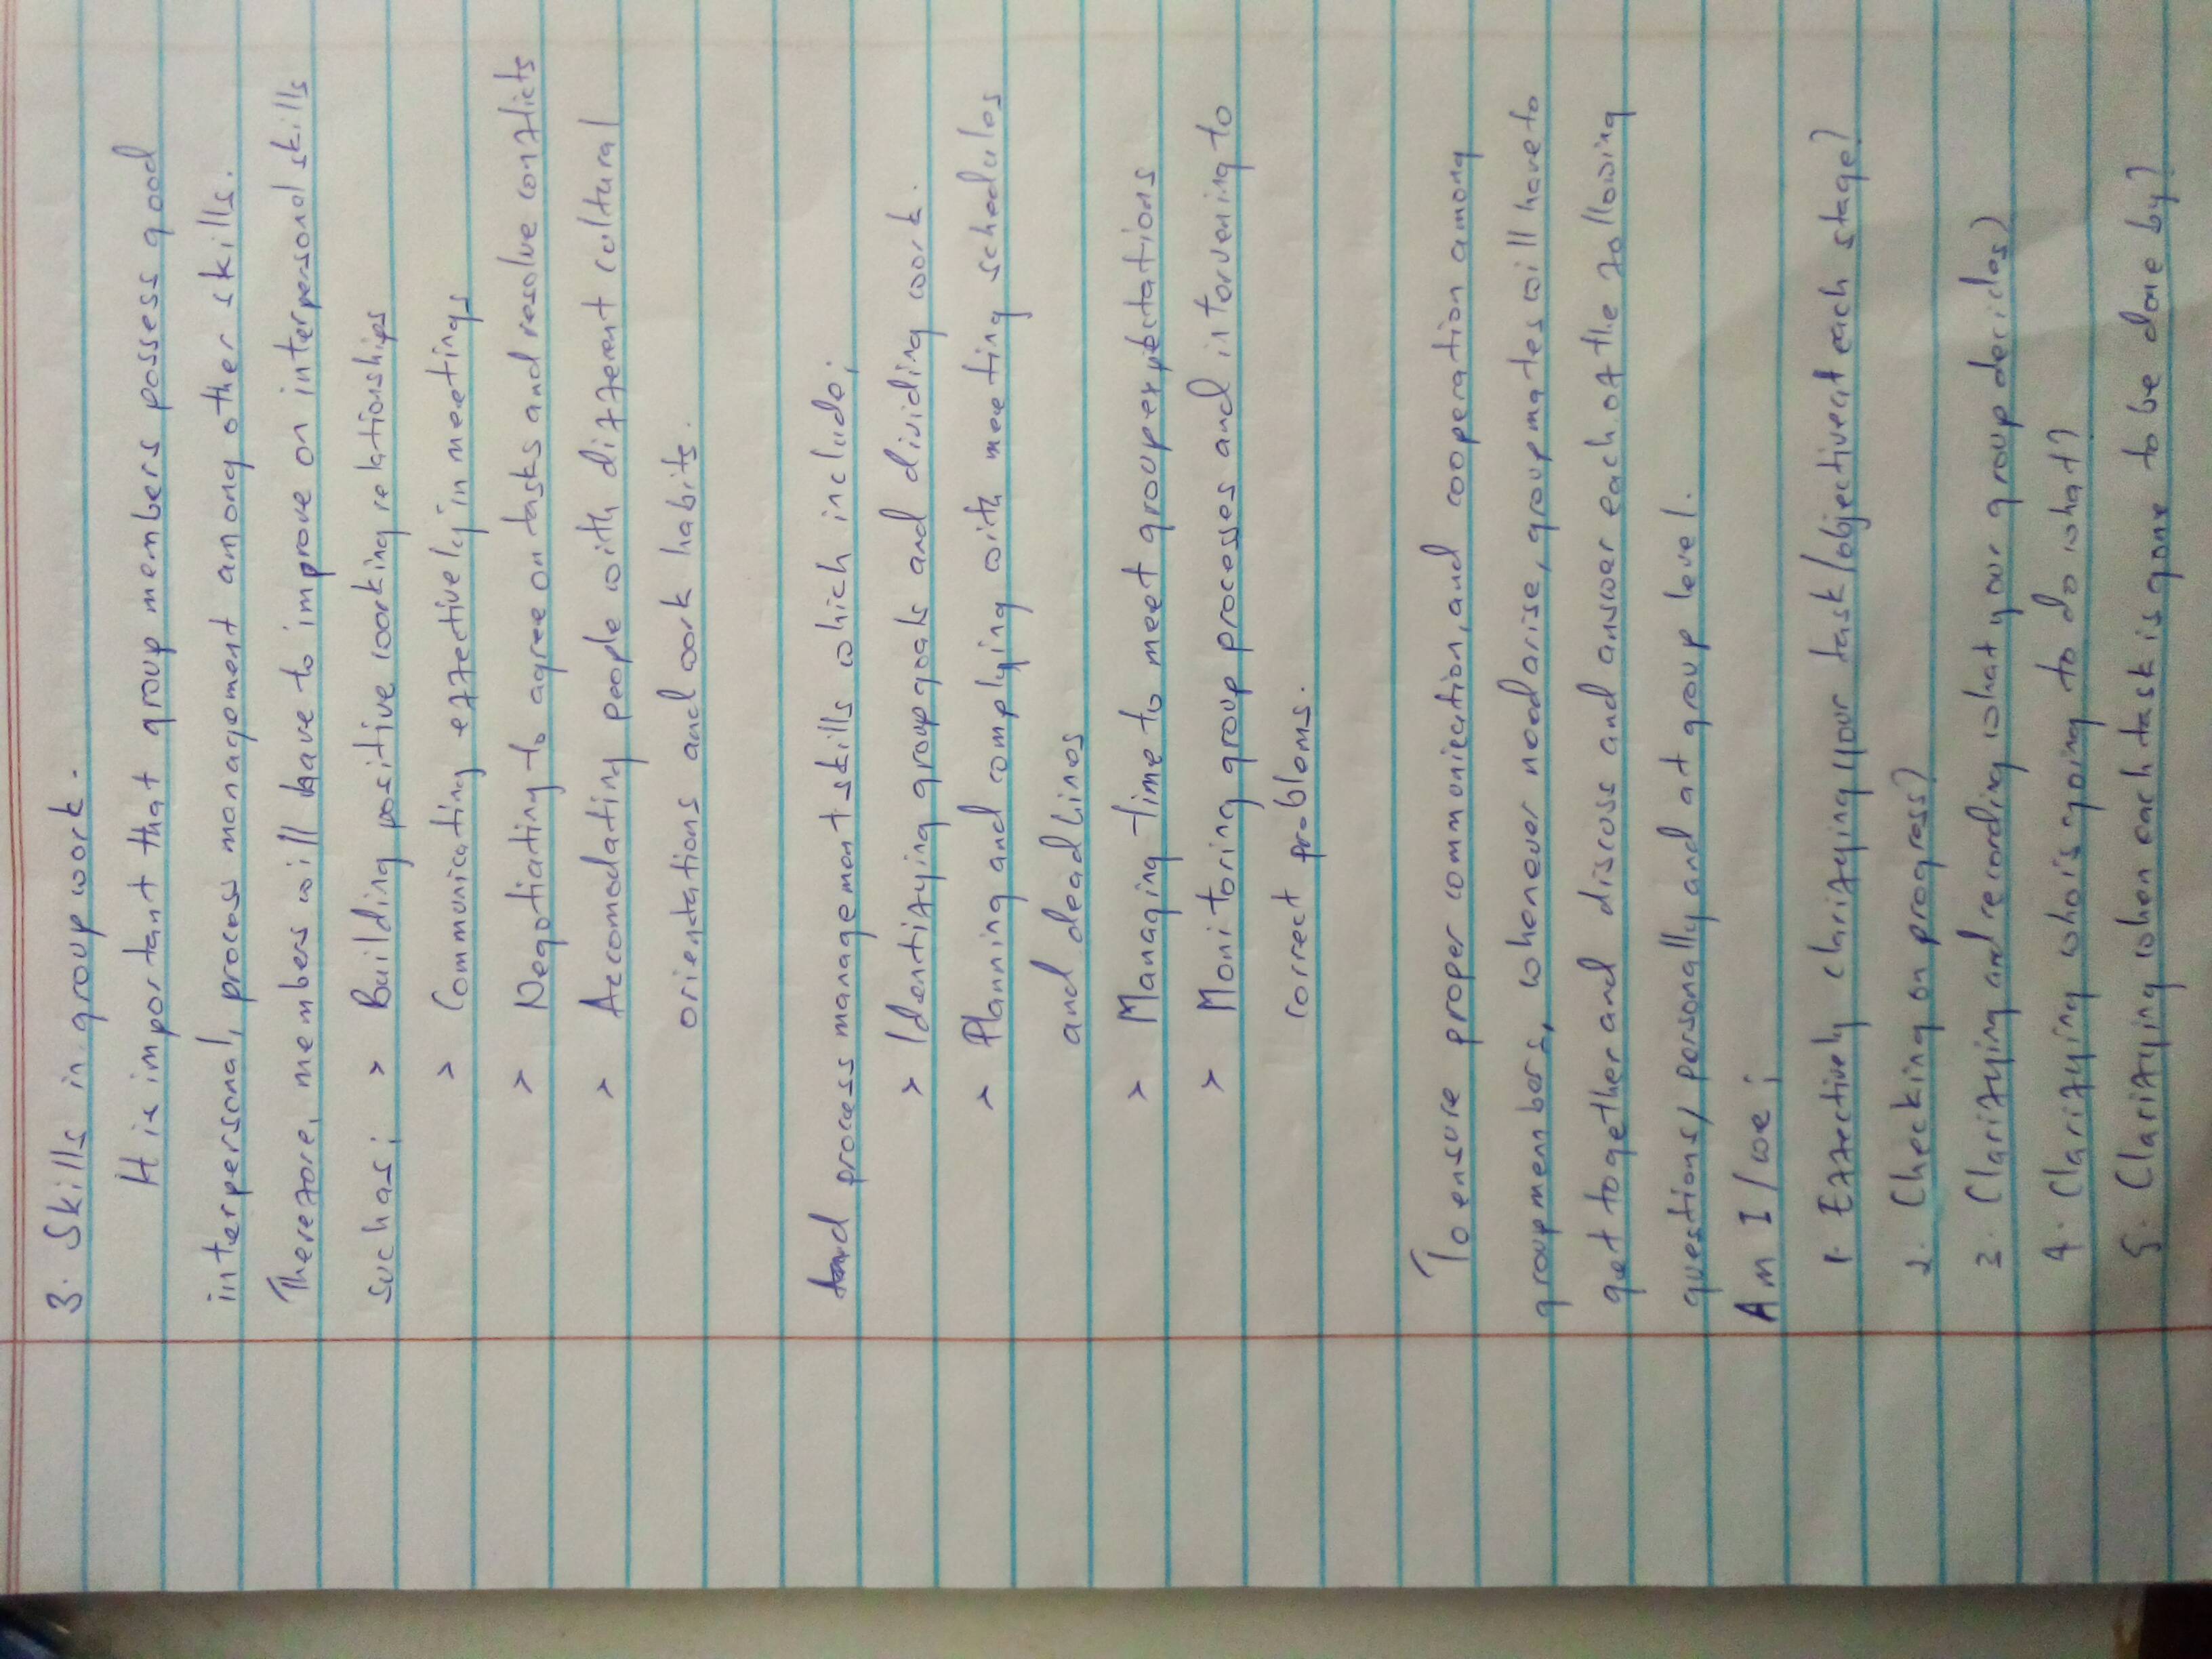 3. Skills in group work.
It is important that group members possess good
interpersonal, process management among other skills.
Therefore, members will have to improve on interpersonal skills
such as; > Building positive working relationships
> Communicating effectively in meetings
> Negotiating to agree on tasks and resolve conflicts
> Accomodating people with different cultural
orientations and work habits.
And process management skills which include;
> Identifying group goals and dividing work.
> Planning and complying with meeting schedules
and deadlines
> Managing time to meet group expectations
> Monitoring group processes and intervening to
correct problems.
To ensure proper communication, and cooperation among
group members, whenever need arise, group mates will have to
get together and discuss and answer each of the following
questions, personally and at group level.
Am I/we;
1. Effectively clarifying your task/objective at each stage?
2. Checking on progress?
3. Clarifying and recording what your group decides?
4. Clarifying who is going to do what?
5. Clarifying when each task is gone to be done by?